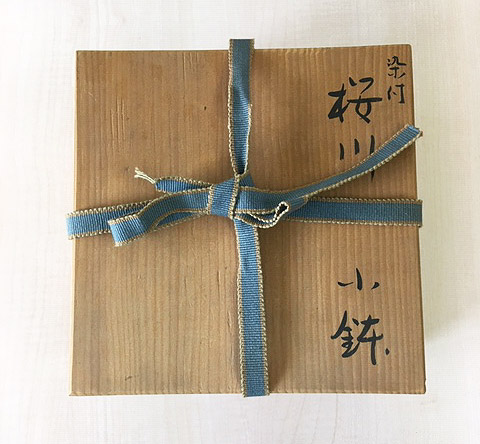 染付
桜川
小鉢